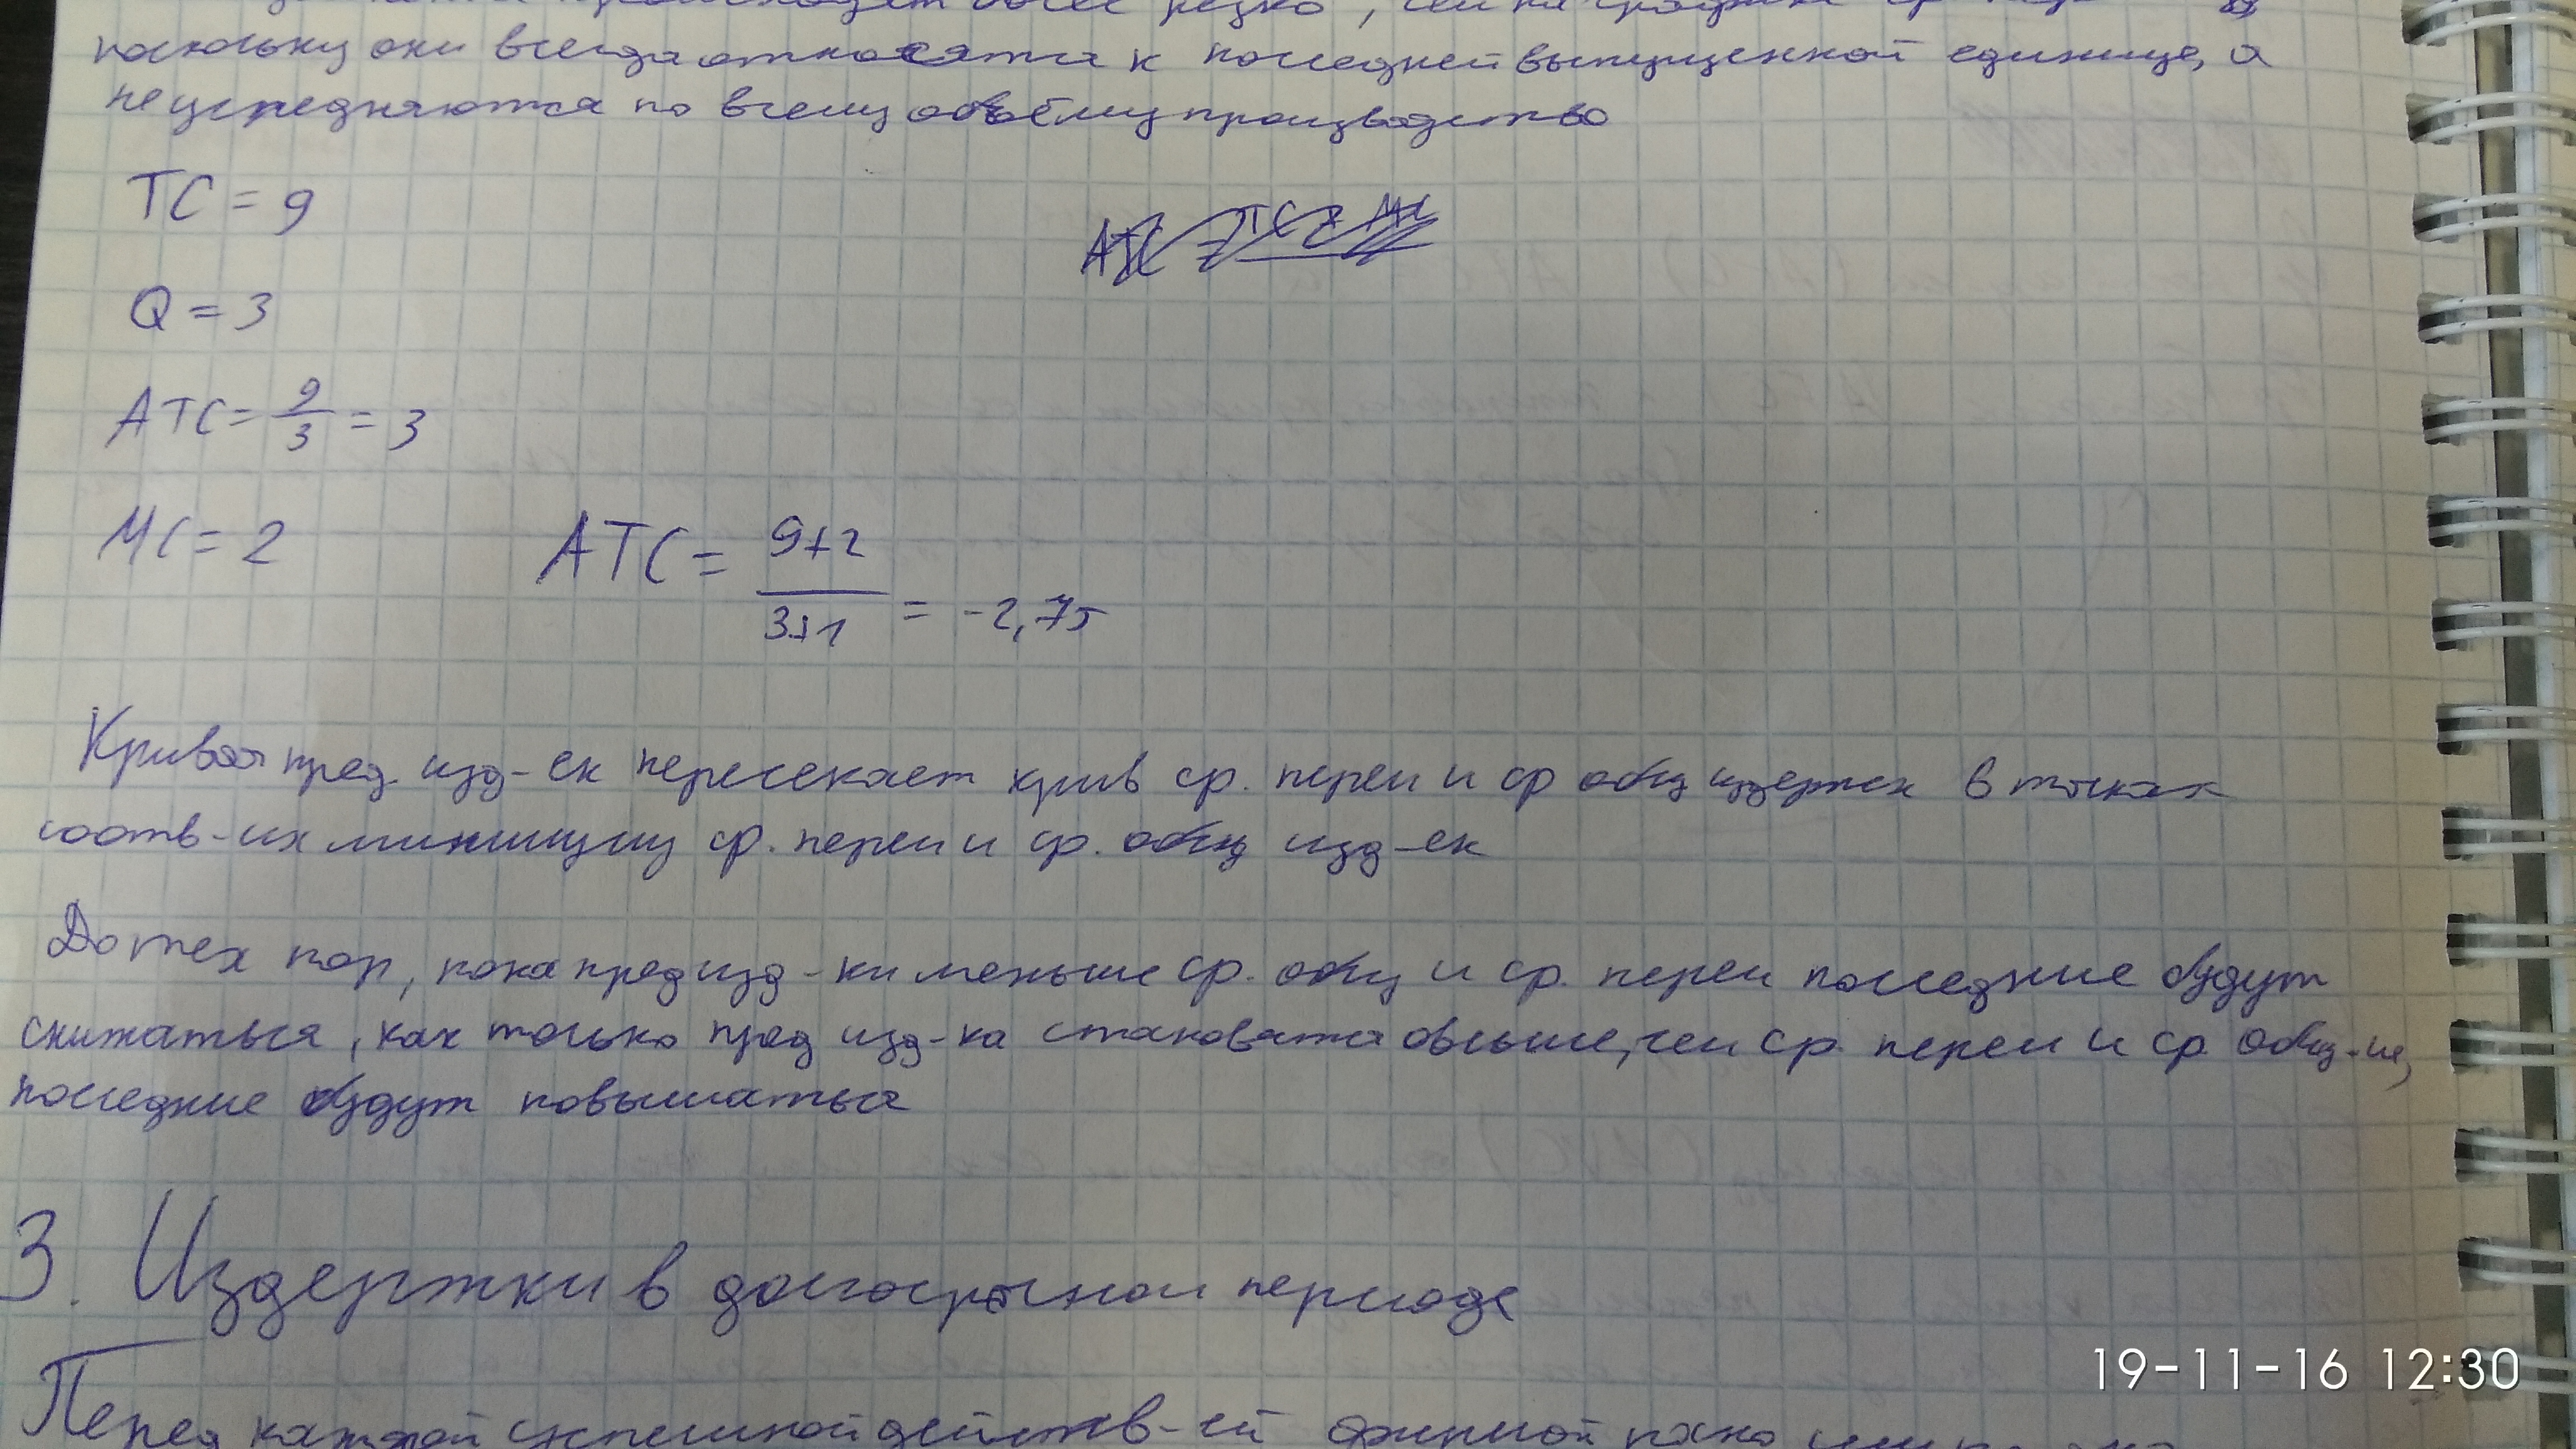 происходит более резко, чем на графике ср.
поскольку они всегда относятся к последней выпущенной единице, а
не усредняются по всему объёму производства
TC = 9
ATC = TC + MC
Q = 3
ATC = 9/3 = 3
MC = 2
ATC = 9+2 / 3+1 = -2,75
Кривая пред. изд-ек пересекает крив ср. перем и ср общ издержек в точках
соотв-их минимуму ср. перем и ср. общ изд-ек
До тех пор, пока пред изд-ки меньше ср. общ и ср. перем последние будут
снижаться, как только пред изд-ка становятся овыше, чем ср. перем и ср общ-ие,
последние будут повышаться
3. Издержки в долгосрочном периоде
Перед каждой успешной действ-ей фирмой
19-11-16 12:30